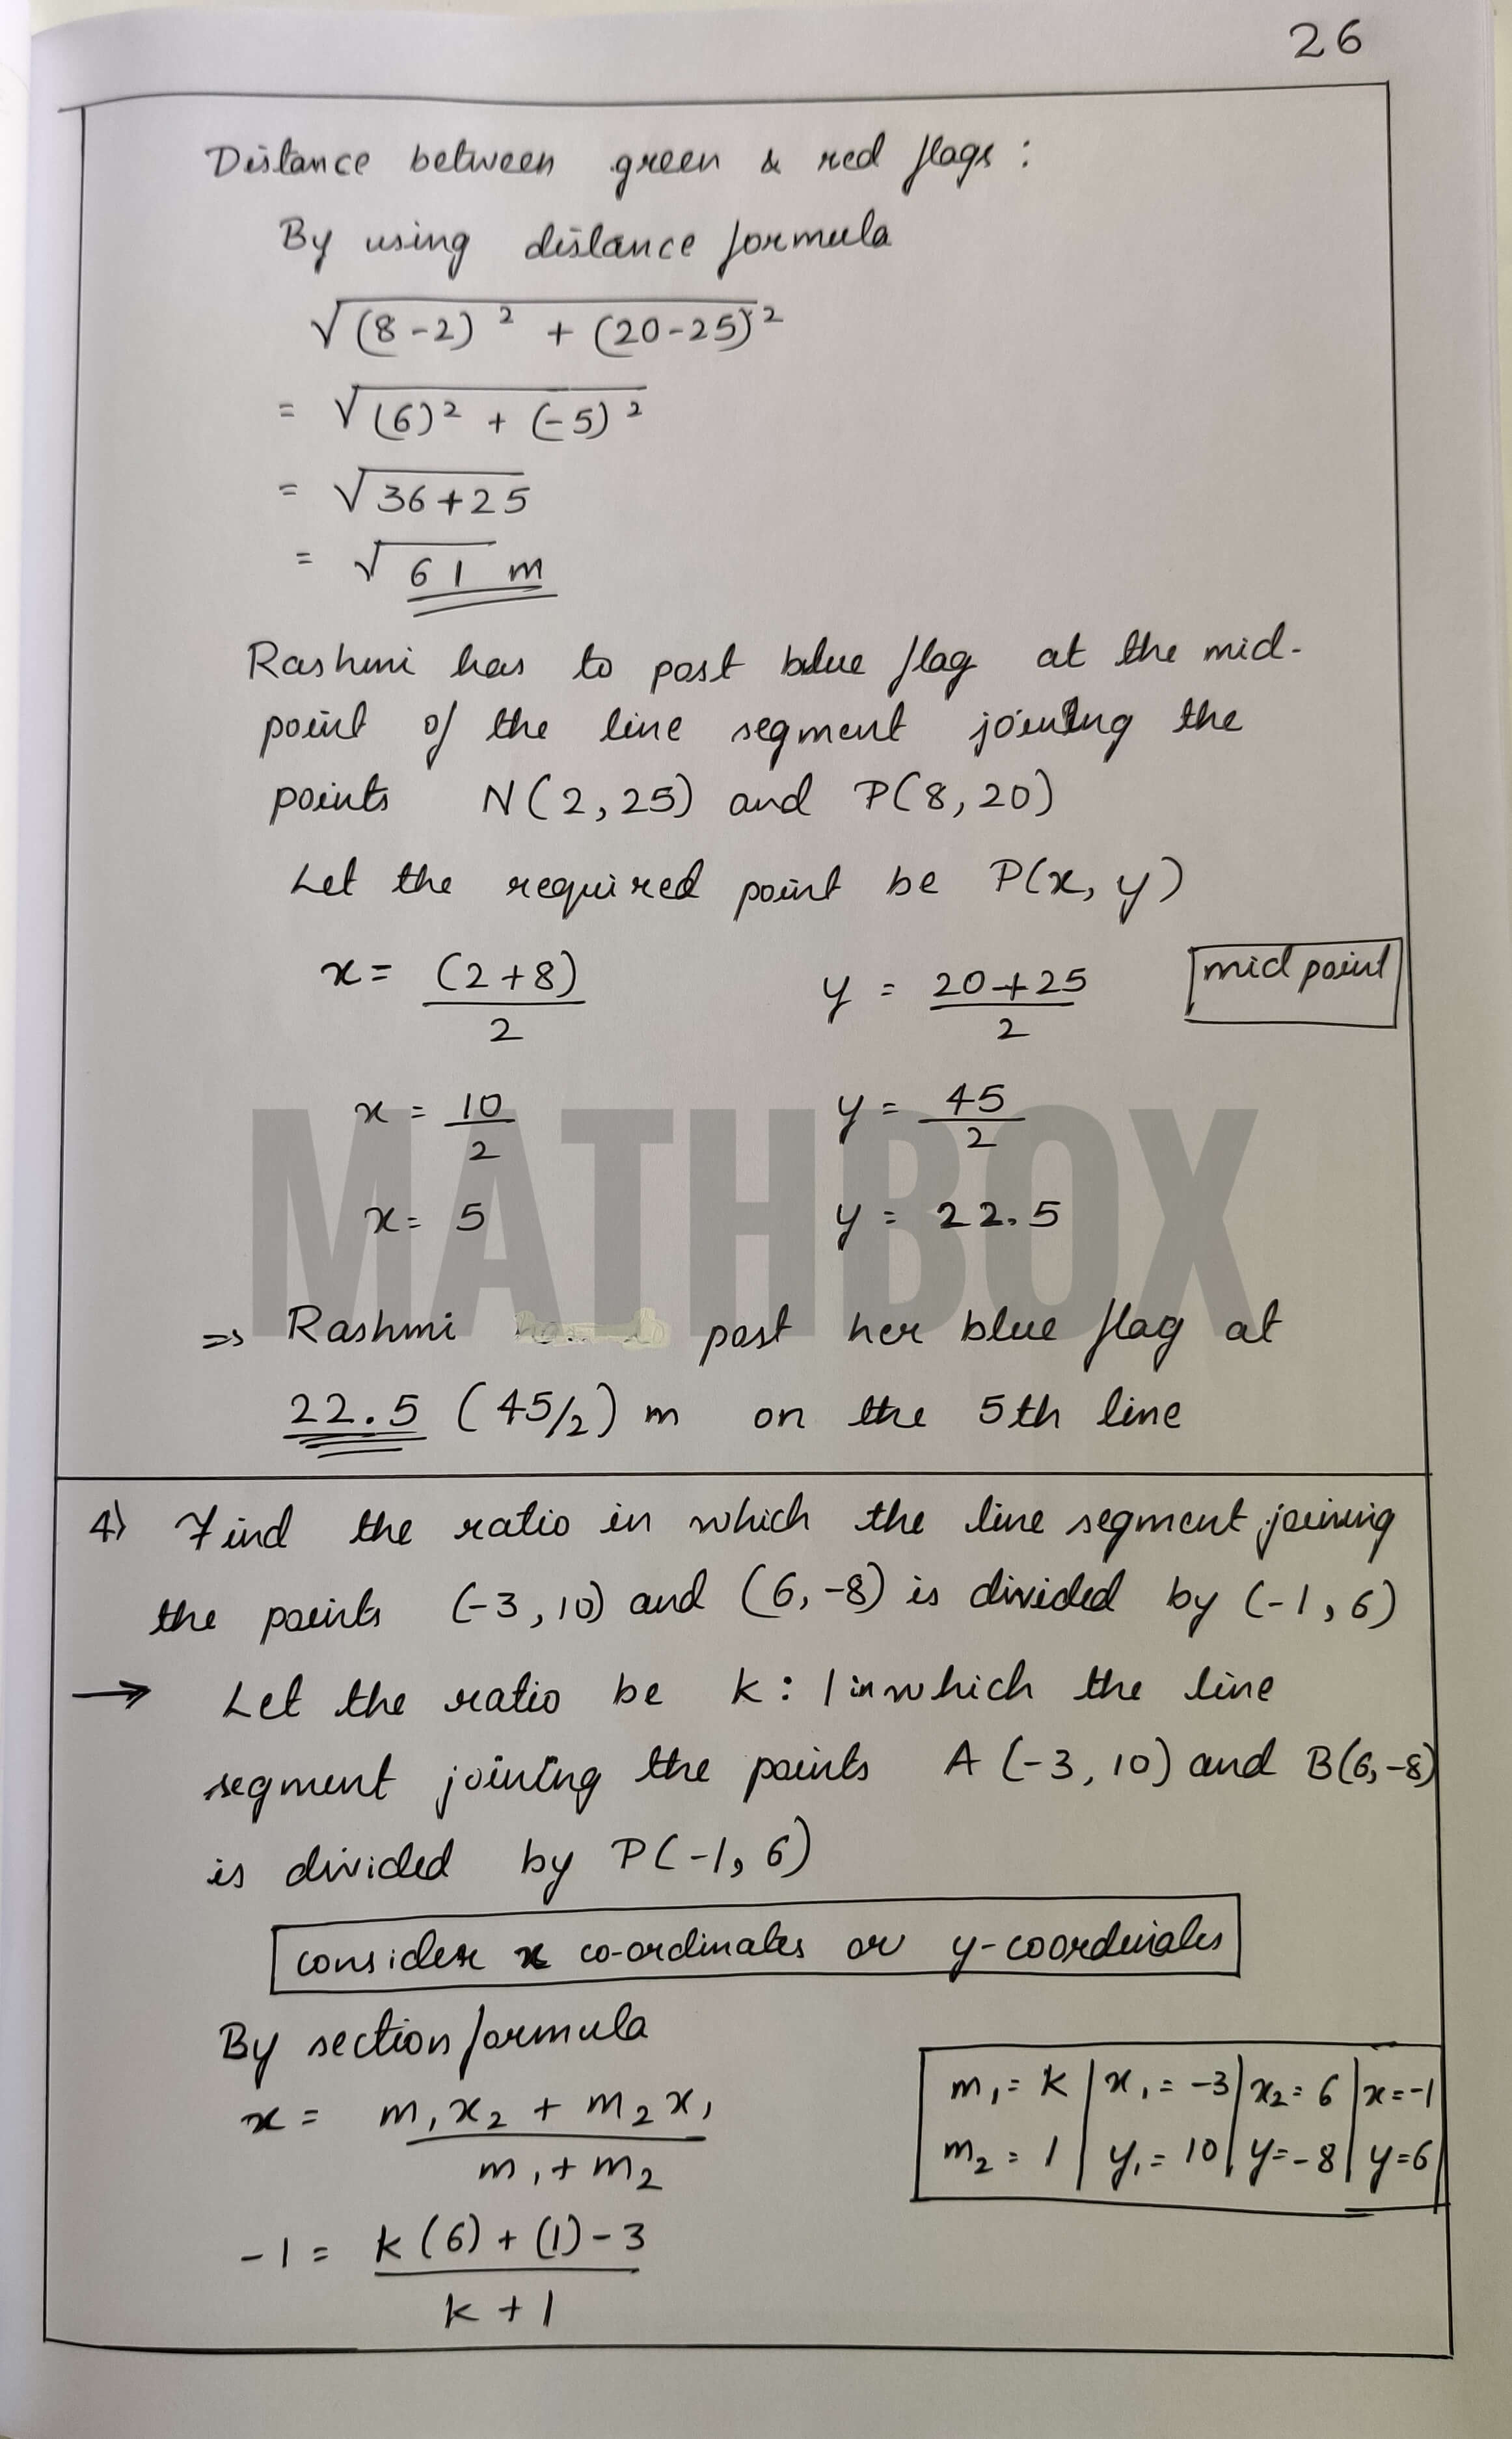 26
Distance between green & red flags :
By using distance formula
√(8-2)² + (20-25)²
= √(6)² + (-5)²
= √36+25
= √61 m
Rashmi has to post blue flag at the mid-
point of the line segment joining the
points N(2,25) and P(8,20)
Let the required point be P(x, y)
x = (2+8)/2 y = 20+25/2 mid point
x = 10/2 y = 45/2
x = 5 y = 22.5
MATHBOX
=> Rashmi post her blue flag at
22.5 (45/2) m on the 5th line
4) Find the ratio in which the line segment joining
the points (-3,10) and (6,-8) is divided by (-1,6)
→ Let the ratio be k:1 in which the line
segment joining the points A(-3,10) and B(6,-8)
is divided by P(-1,6)
consider x co-ordinates or y-coordinates
By section formula
x = m₁x₂ + m₂x₁ / m₁+m₂
m₁ = k | x₁ = -3 | x₂ = 6 | x = -1
m₂ = 1 | y₁ = 10 | y = -8 | y = 6
-1 = k(6) + (1)-3 / k+1